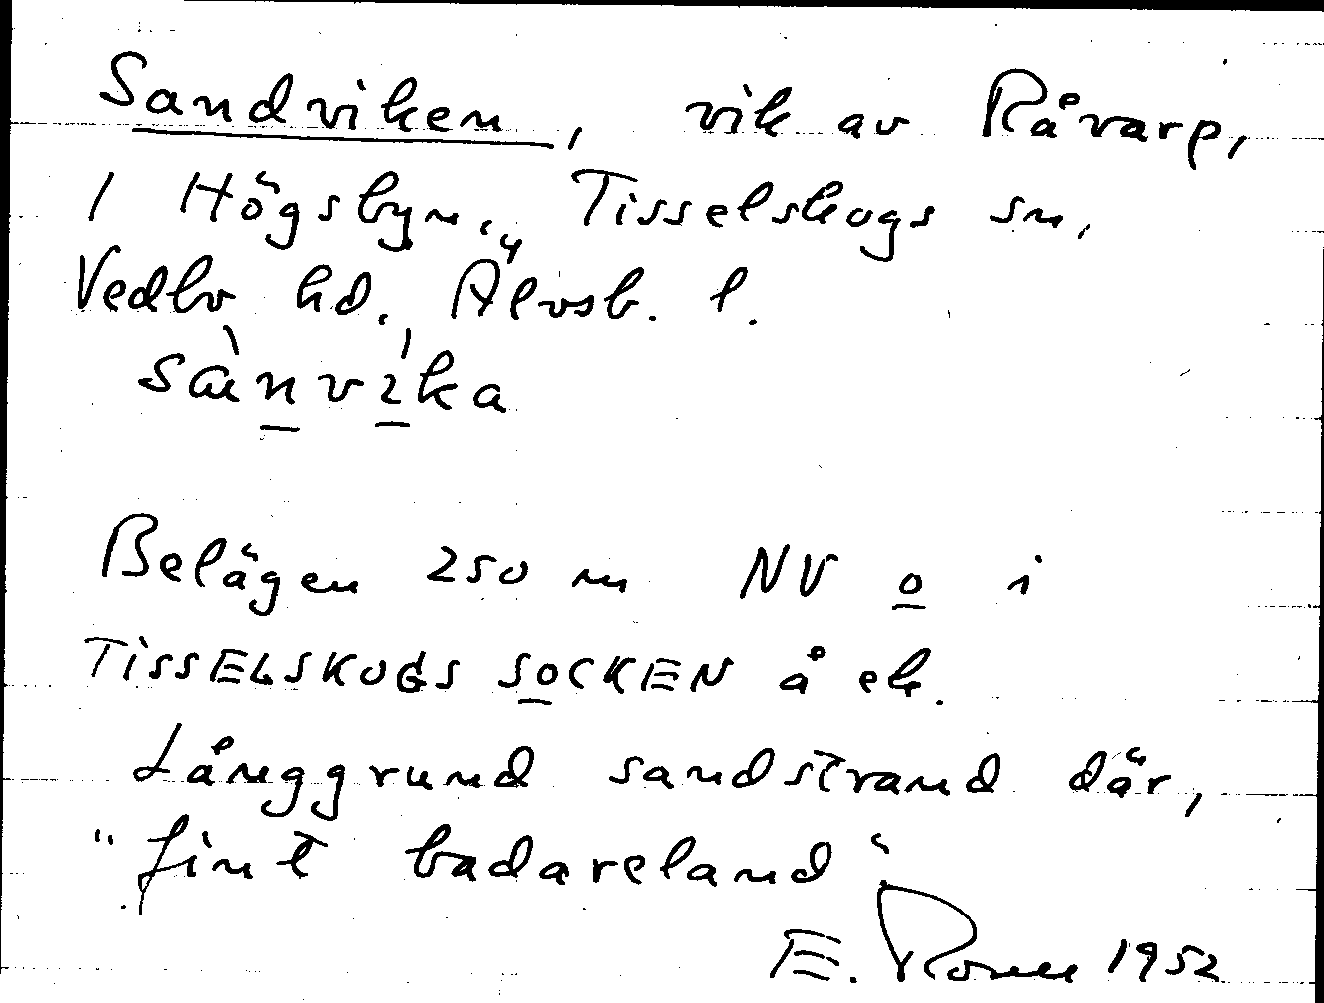 Sandviken, vik av Råvarp,
1 Högsbyn, Tisselskogs sn,
Vedbo hd., Älvsb. l.
sànvíka
Belägen 250 m NV o i
TISSELSKOGS SOCKEN å ek.
Långgrund sandstrand där,
"fint badareland"
E. 1952